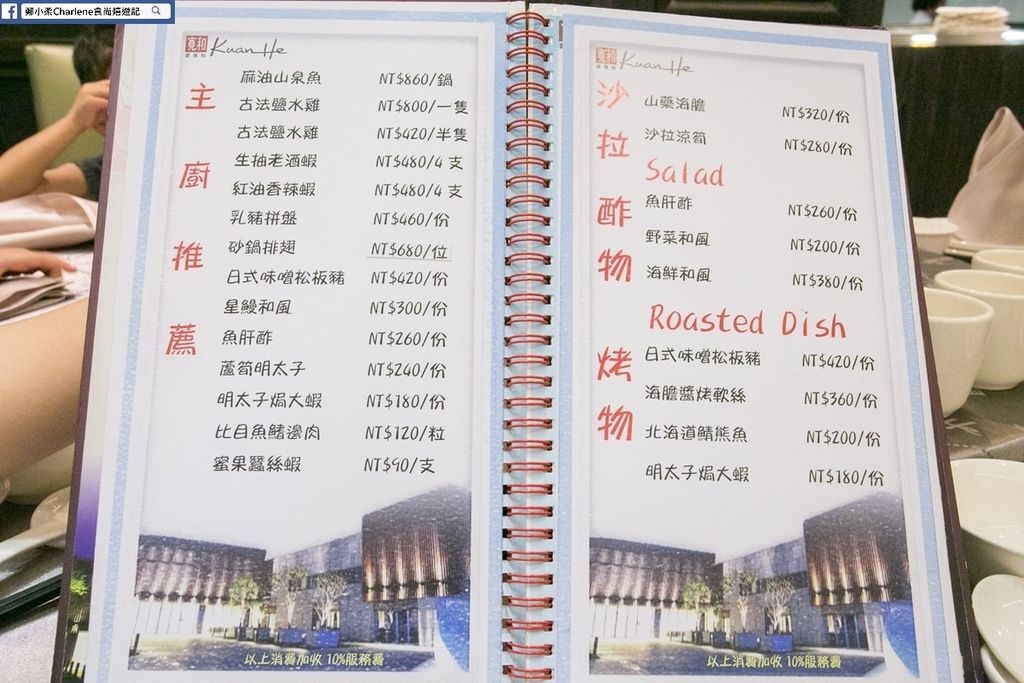 鄭小柔Charlene食尚嬉遊記
寬和
宴展館
Kuan He
主廚推薦
麻油山泉魚 NT$860/鍋
古法鹽水雞 NT$800/一隻
古法鹽水雞 NT$420/半隻
生抽老酒蝦 NT$480/4 支
紅油香辣蝦 NT$480/4 支
乳豬拼盤 NT$460/份
砂鍋排翅 NT$680/位
日式味噌松板豬 NT$420/份
星鰻和風 NT$300/份
魚肝酢 NT$260/份
蘆筍明太子 NT$240/份
明太子焗大蝦 NT$180/份
比目魚鰭邊肉 NT$120/粒
蜜果蠶絲蝦 NT$90/支
以上消費加收 10%服務費
寬和
宴展館
Kuan He
沙拉
山藥海膽 NT$320/份
沙拉涼筍 NT$280/份
Salad
酢物
魚肝酢 NT$260/份
野菜和風 NT$200/份
海鮮和風 NT$380/份
Roasted Dish
烤物
日式味噌松板豬 NT$420/份
海膽醬烤軟絲 NT$360/份
北海道鯖熊魚 NT$200/份
明太子焗大蝦 NT$180/份
以上消費加收 10%服務費